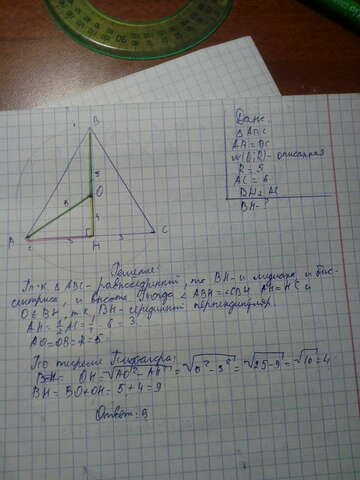 B
5
O
5
4
A
3
H
3
C
Дано:
Δ ABC
AB = BC
w(O;R) - описанная
R = 5
AC = 6
BH ⊥ AC
BH - ?
Решение:
Т.к. Δ ABC - равнобедренный, то BH - и медиана, и бис-
сектриса, и высота. Тогда ∠ABH = ∠CBH, AH = HC и
O ∈ BH, т.к. BH - серединный перпендикуляр.
AH = 1/2 AC = 1/2 · 6 = 3
AO = OB = R = 5
По теореме Пифагора:
OH = √AO² - AH² = √5² - 3² = √25 - 9 = √16 = 4
BH = BO + OH = 5 + 4 = 9
Ответ: 9